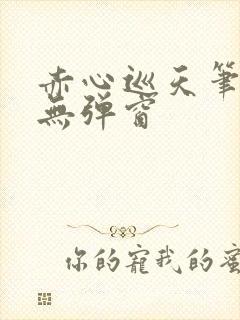 赤心巡天筆
無彈窗
你的寵我的蜜